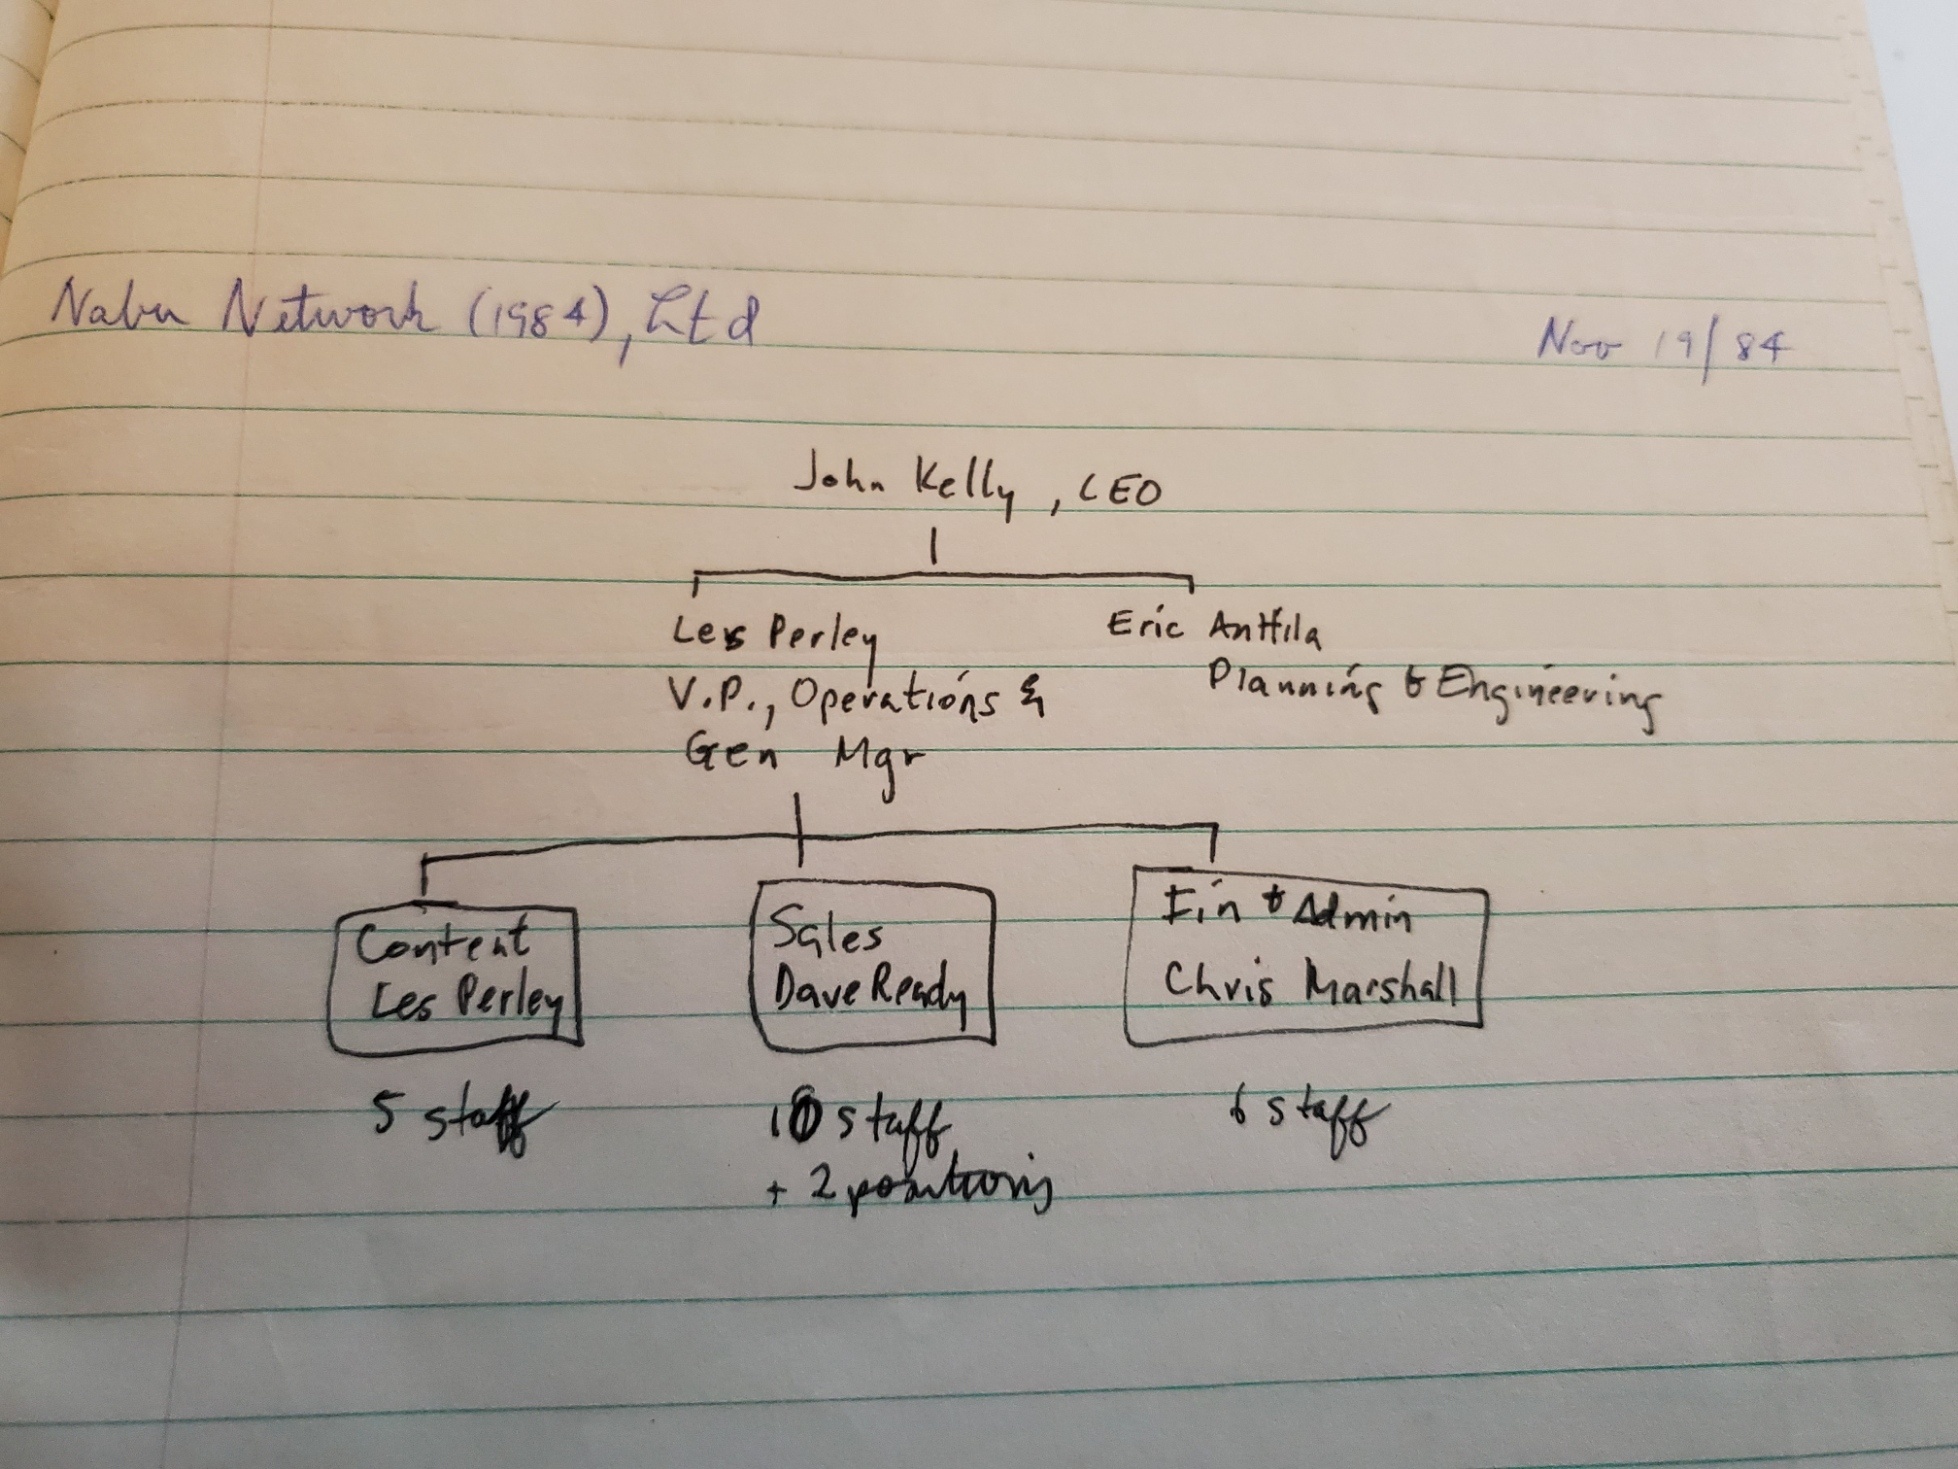 Nabu Network (1984), Ltd
Nov 19/84
John Kelly, CEO
Les Perley
Eric Anttila
V.P., Operations &
Planning & Engineering
Gen Mgr
Content
Les Perley
Sales
Dave Ready
Fin & Admin
Chris Marshall
5 staff
10 staff
6 staff
+ 2 positions